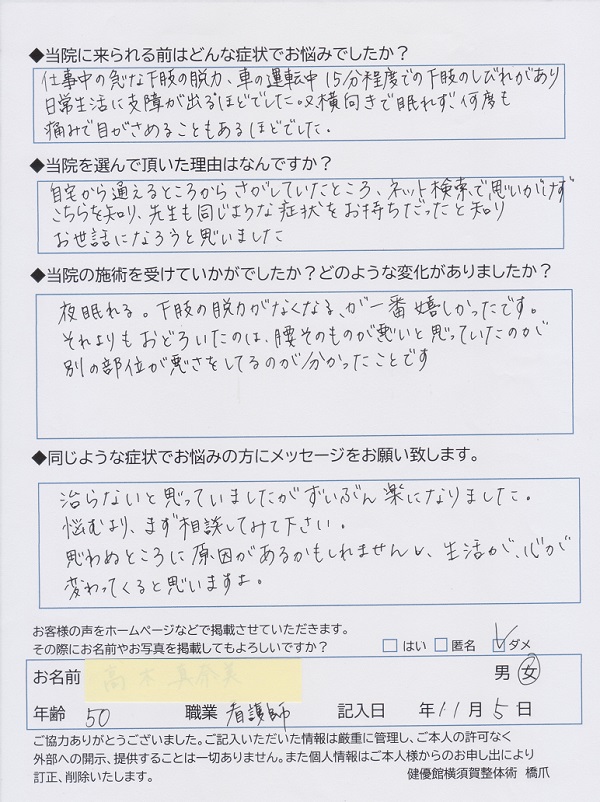 ◆当院に来られる前はどんな症状でお悩みでしたか？
仕事中の急な下肢の脱力、車の運転中15分程度での下肢のしびれがあり
日常生活に支障が出るほどでした。又横向きで眠れず何度も
痛みで目がさめることもあるほどでした。
◆当院を選んで頂いた理由はなんですか？
自宅から通えるところからさがしていたところ、ネット検索で思いがけず
こちらを知り、先生も同じような症状をお持ちだったと知り
お世話になろうと思いました
◆当院の施術を受けていかがでしたか？どのような変化がありましたか？
夜眠れる。下肢の脱力がなくなる、が一番嬉しかったです。
それよりもおどろいたのは、腰そのものが悪いと思っていたのが
別の部位が悪さをしてるのが分かったことです
◆同じような症状でお悩みの方にメッセージをお願い致します。
治らないと思っていましたがずいぶん楽になりました。
悩むより、まず相談してみて下さい。
思わぬところに原因があるかもしれませんし、生活が、心が
変わってくると思いますよ。
お客様の声をホームページなどで掲載させていただきます。
その際にお名前やお写真を掲載してもよろしいですか？ □はい □匿名 ☑ダメ
お名前 男 女
年齢 50 職業 看護師 記入日 年11月5日
ご協力ありがとうございました。ご記入いただいた情報は厳重に管理し、ご本人の許可なく
外部への開示、提供することは一切ありません。また個人情報はご本人様からのお申し出により
訂正、削除いたします。 健優館横須賀整体術 橋爪